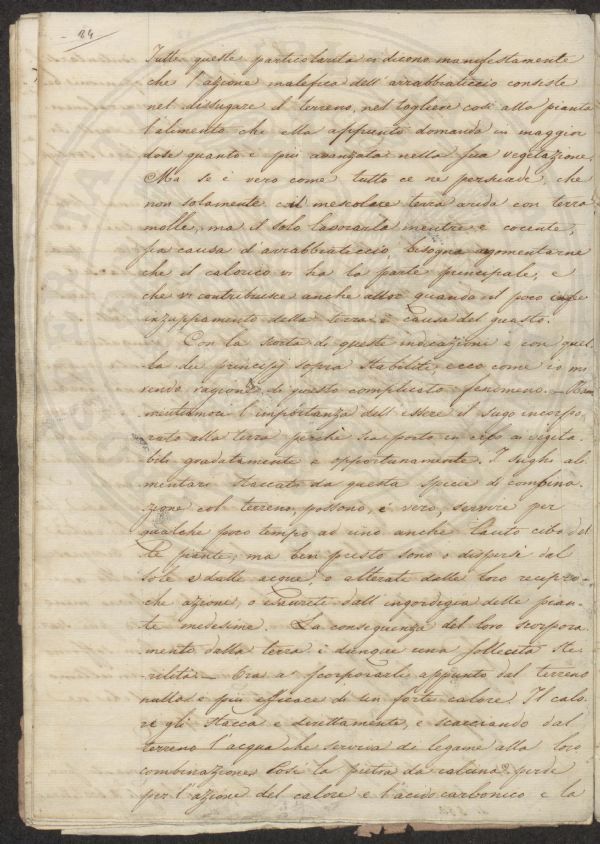 84
Tutte queste particolarità ci dicono manifestamente
che l'azione malefica dell'arrabbiaticcio consiste
nel dissugare il terreno, nel togliere così alla pianta
l'alimento che ella appunto domanda in maggior
dose quanto è più avanzata nella sua vegetazione.
Ma se è vero come tutto ce ne persuade, che
non solamente il mescolare terra arida con terra
molle, ma il solo lavorarla mentre è cocente,
sia causa d'arrabbiaticcio, bisogna argomentarne
che il calorico vi ha la parte principale, e
che vi contribuisce anche allor quando il poco
inzuppamento della terra è causa del guasto.
Con la scorta di queste indicazioni e con quel
la dei principj sopra stabiliti, ecco come io mi
rendo ragione di questo complicato fenomeno. —
mentiamoci l'importanza dell'essere il sugo incorpo
rato alla terra perchè sia porto in cibo ai vegeta
bili gradatamente e opportunamente. I sughi ali
mentari staccati da questa specie di combina
zione col terreno, possono, è vero, servire per
qualche poco tempo ad uno anche lauto cibo del
le piante, ma ben presto sono o dispersi dal
sole e dalle acque, o alterati dalle loro recipro
che azioni, o esauriti dall'ingordigia delle pian
te medesime. La conseguenza del loro scorpora
mento dalla terra è dunque una sollecita ste
rilità. — Ora a scorporarli appunto dal terreno
nulla è più efficace di un forte calore. Il calo
re gli stacca e direttamente, e scacciando dal
terreno l'acqua che serviva di legame alla loro
combinazione. Così la pietra da calcina perde
per l'azione del calore e l'acido carbonico e la